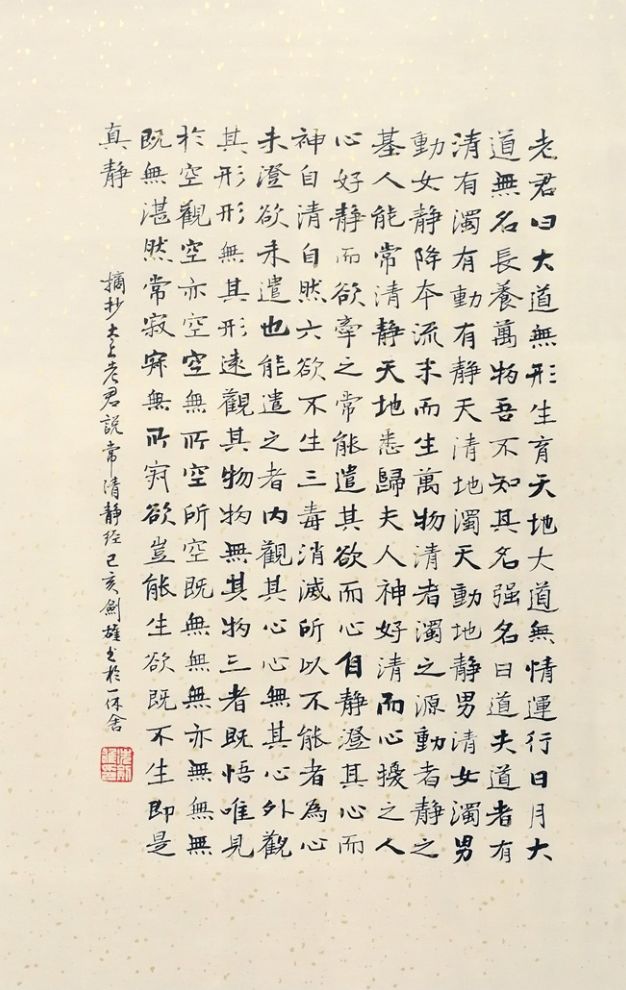 老君曰大道無形生育天地大道無情運行日月大
道無名長養萬物吾不知其名强名曰道夫道者有
清有濁有動有静天清地濁天動地静男清女濁男
動女静降本流末而生萬物清者濁之源動者静之
基人能常清静天地悉歸夫人神好清而心擾之人
心好静而欲牽之常能遣其欲而心自静澄其心而
神自清自然六欲不生三毒消滅所以不能者為心
未澄欲未遣也能遣之者内觀其心心無其心外觀
其形形無其形遠觀其物物無其物三者既悟唯見
於空觀空亦空空無所空所空既無無無亦無無無
既無湛然常寂寂無所寂欲豈能生欲既不生即是
真静
摘抄太上老君説常清静经己亥劍雄书於一休舍